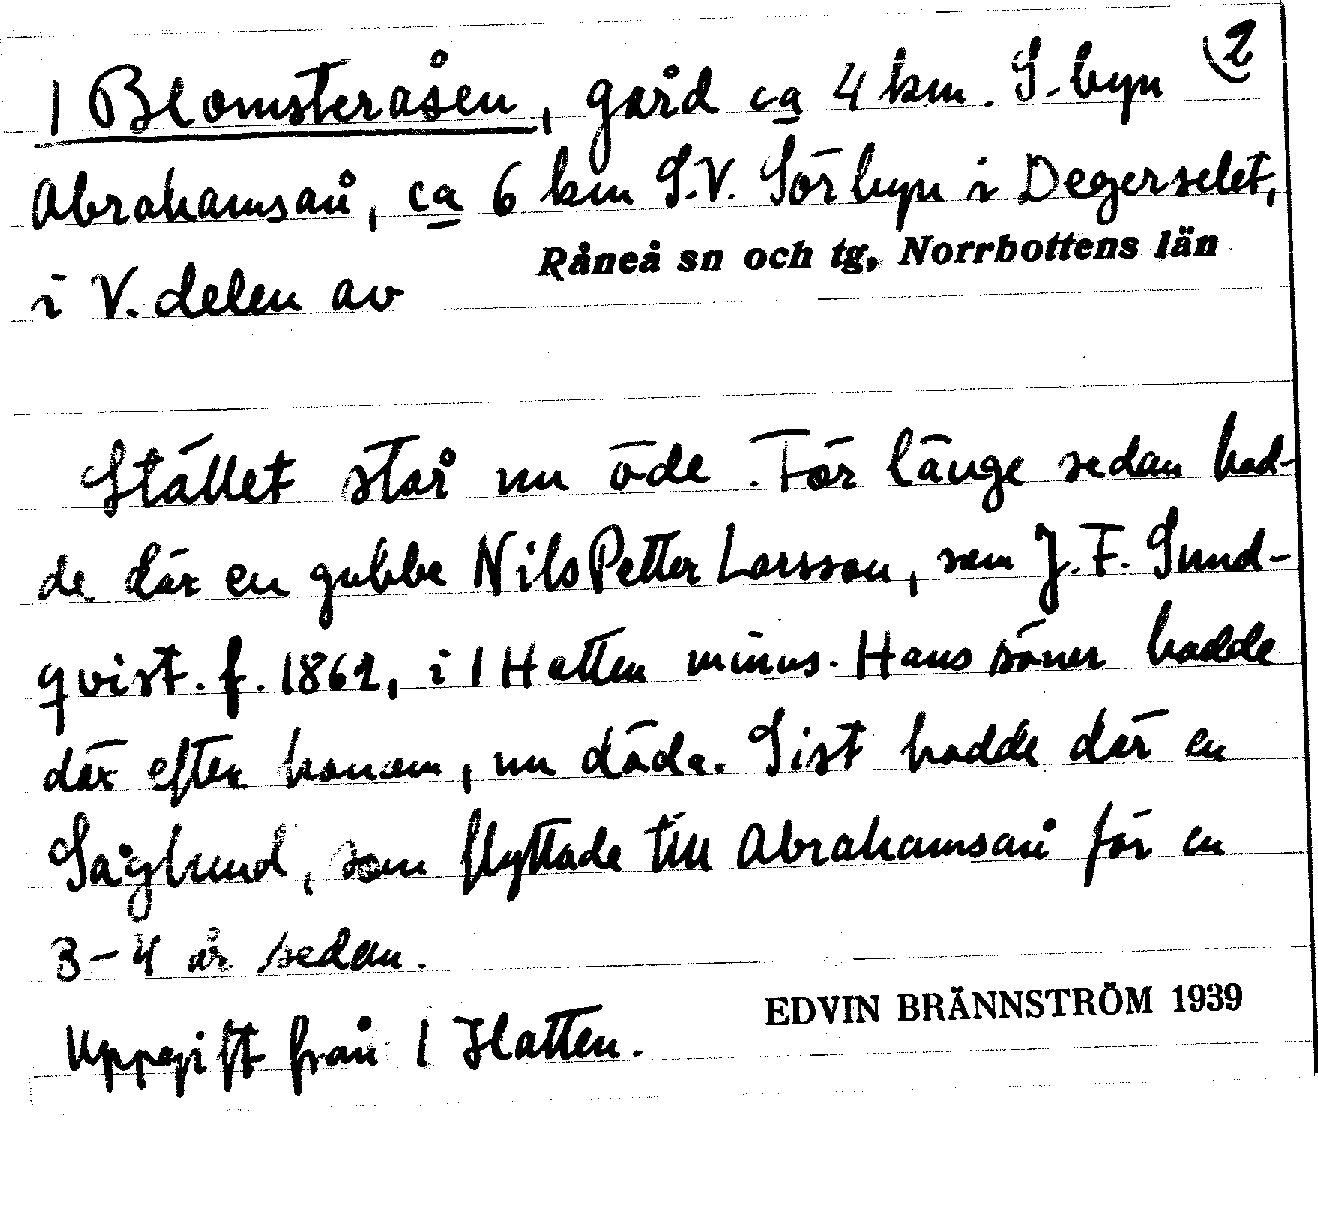 1 Blomsteråsen, gård ca 4 km. S. byn 2
Abrahamsån, ca 6 km S.V. Sörbyn i Degerselet,
i V. delen av Råneå sn och tg, Norrbottens län
Stället står nu öde. För länge sedan bod-
de där en gubbe Nils Petter Larsson, som J. F. Sund-
qvist. f. 1862, i 1 Hatten minns. Hans söner bodde
där efter honom, nu döda. Sist bodde där en
Såglund, som flyttade till Abrahamsån för en
3-4 år sedan.
Uppgift från 1 Hatten.
EDVIN BRÄNNSTRÖM 1939